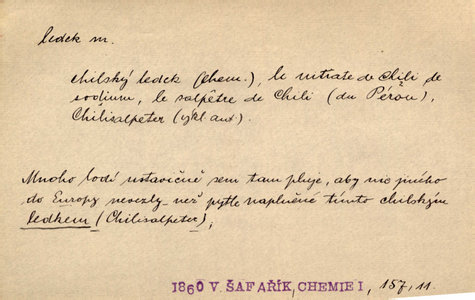 ledek m.
chilský ledek (chem.), le nitrate de Chili, de
sodium, le salpêtre de Chili (du Pérou),
Chilisalpeter (výkl. aut.).
Mnoho lodí ustavičně sem tam pluje, aby nic jiného
do Europy nevezly než pytle naplněné tímto chilským
ledkem (Chilisalpeter);
1860 V. ŠAFAŘÍK, CHEMIE I, 157, 11.